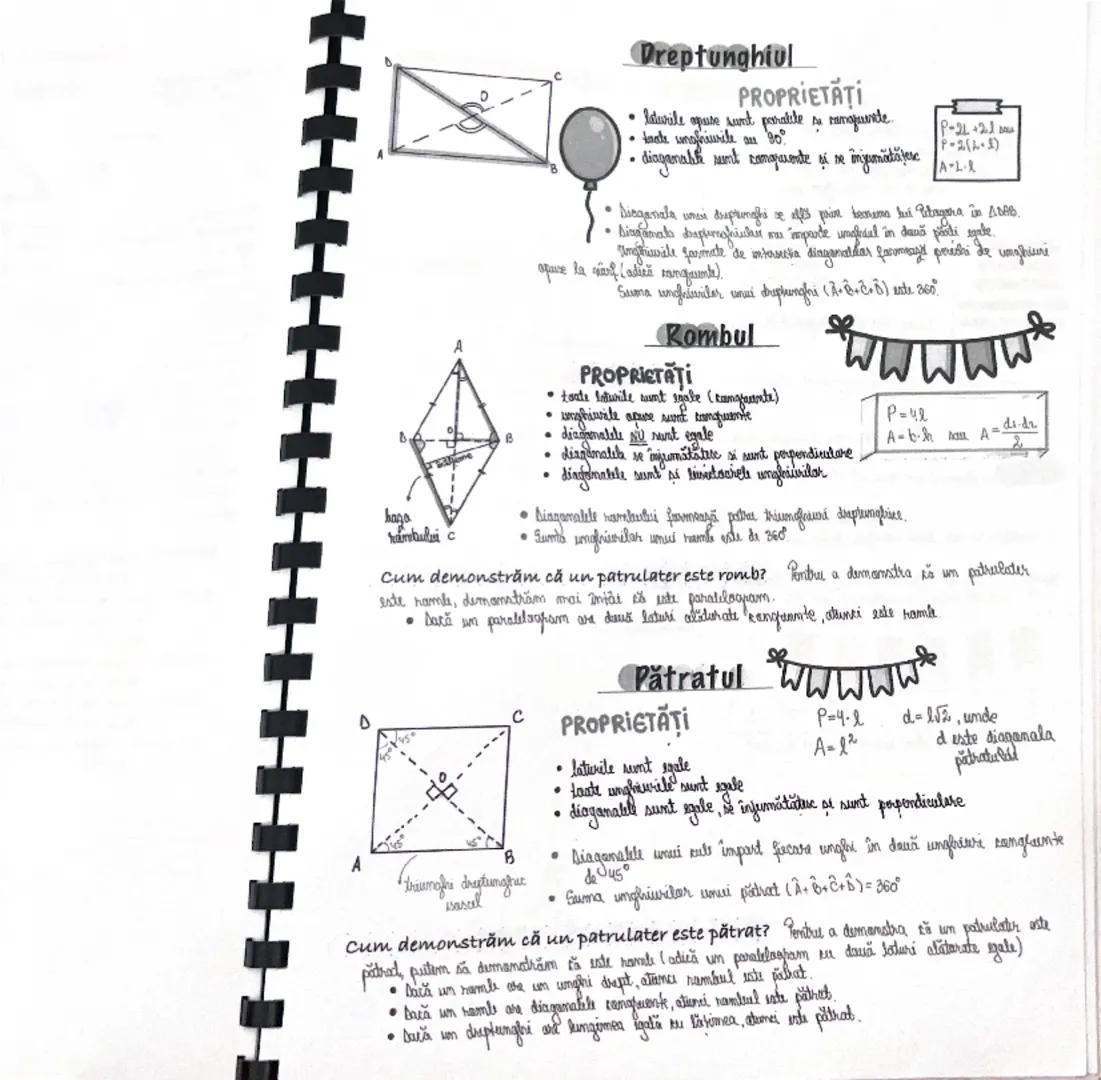 Dreptunghiul
D
C
O
A
B
PROPRIETĂȚI
• laturile opuse sunt paralele și congruente.
• toate unghiurile au 90°.
• diagonalele sunt congruente și se înjumătățesc
P=2L+2l sau
P=2(L+l)
A=L·l
• Diagonala unui dreptunghi se află prin teorema lui Pitagora în ΔDAB.
• Diagonala dreptunghiului nu împarte unghiul în două părți egale.
Unghiurile formate de intersecția diagonalelor formează perechi de unghiuri
opuse la vârf (adică congruente).
Suma unghiurilor unui dreptunghi (Â+B̂+Ĉ+D̂) este 360°.
Rombul
A
D
O
B
înălțime
baza
rombului C
PROPRIETĂȚI
• toate laturile sunt egale (congruente)
• unghiurile opuse sunt congruente
• diagonalele NU sunt egale
• diagonalele se înjumătățesc și sunt perpendiculare
• diagonalele sunt și bisectoarele unghiurilor
P=4l
A=b·h sau A=d1·d2/2
• Diagonalele rombului formează patru triunghiuri dreptunghice.
• Suma unghiurilor unui romb este de 360°
Cum demonstrăm că un patrulater este romb? Pentru a demonstra că un patrulater
este romb, demonstrăm mai întâi că este paralelogram.
• Dacă un paralelogram are două laturi alăturate congruente, atunci este romb.
Pătratul
D
C
45°
45°
O
45°
45°
A
B
triunghi dreptunghic
isoscel
PROPRIETĂȚI
P=4·l
A=l²
d=l√2, unde
d este diagonala
pătratului
• laturile sunt egale
• toate unghiurile sunt egale
• diagonalele sunt egale, se înjumătățesc și sunt perpendiculare
• Diagonalele unui împart fiecare unghi în două unghiuri congruente
de 45°
• Suma unghiurilor unui pătrat (Â+B̂+Ĉ+D̂)=360°
Cum demonstrăm că un patrulater este pătrat? Pentru a demonstra că un patrulater este
pătrat, putem să demonstrăm că este romb (adică un paralelogram cu două laturi alăturate egale)
• Dacă un romb are un unghi drept, atunci rombul este pătrat.
• Dacă un romb are diagonalele congruente, atunci rombul este pătrat.
• Dacă un dreptunghi are lungimea egală cu lățimea, atunci este pătrat.